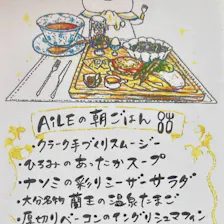 AiLEの朝ごはん
・クラーク手づくりスムージー
・ひろみのあったかスープ
・ナツミの彩りシーザーサラダ
・大分名物 蘭王の温泉たまご
・厚切りベーコンのイングリッシュマフィン